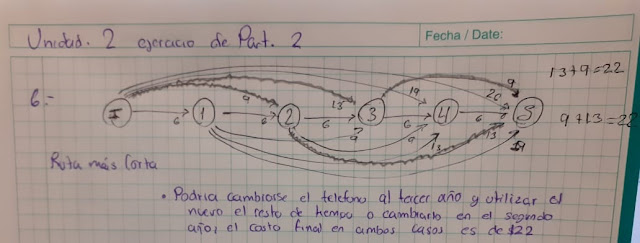 Unidad. 2 ejercicio de Part. 2
Fecha / Date:
6.-
I 1 2 3 4 5
6 6 6 6 6
9 13 19 26 9
9 9 13 13 19
13+9=22
9+13=22
Ruta más Corta
• Podria cambiarse el telefono al tercer año y utilizar el
nuevo el resto de tiempo o cambiarlo en el segundo
año, el costo final en ambos casos es de $22